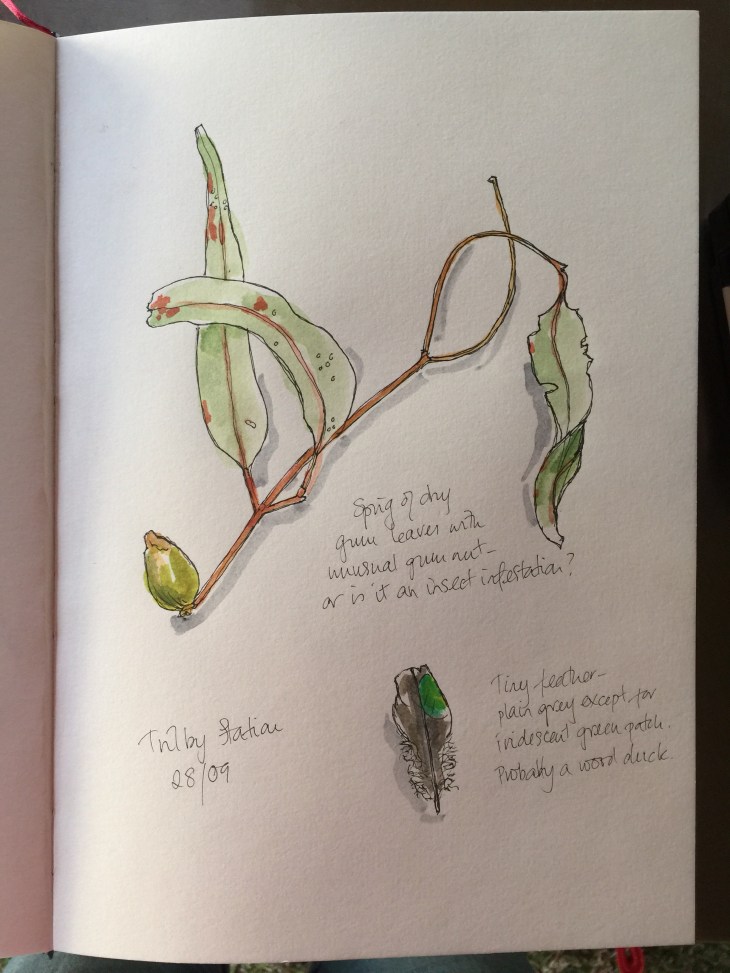 Sprig of dry
gum leaves with
unusual gum nut -
or is it an insect infestation?
Tiny feather -
plain grey except for
iridescent green patch.
Probably a word duck.
Trilby Station
28/09